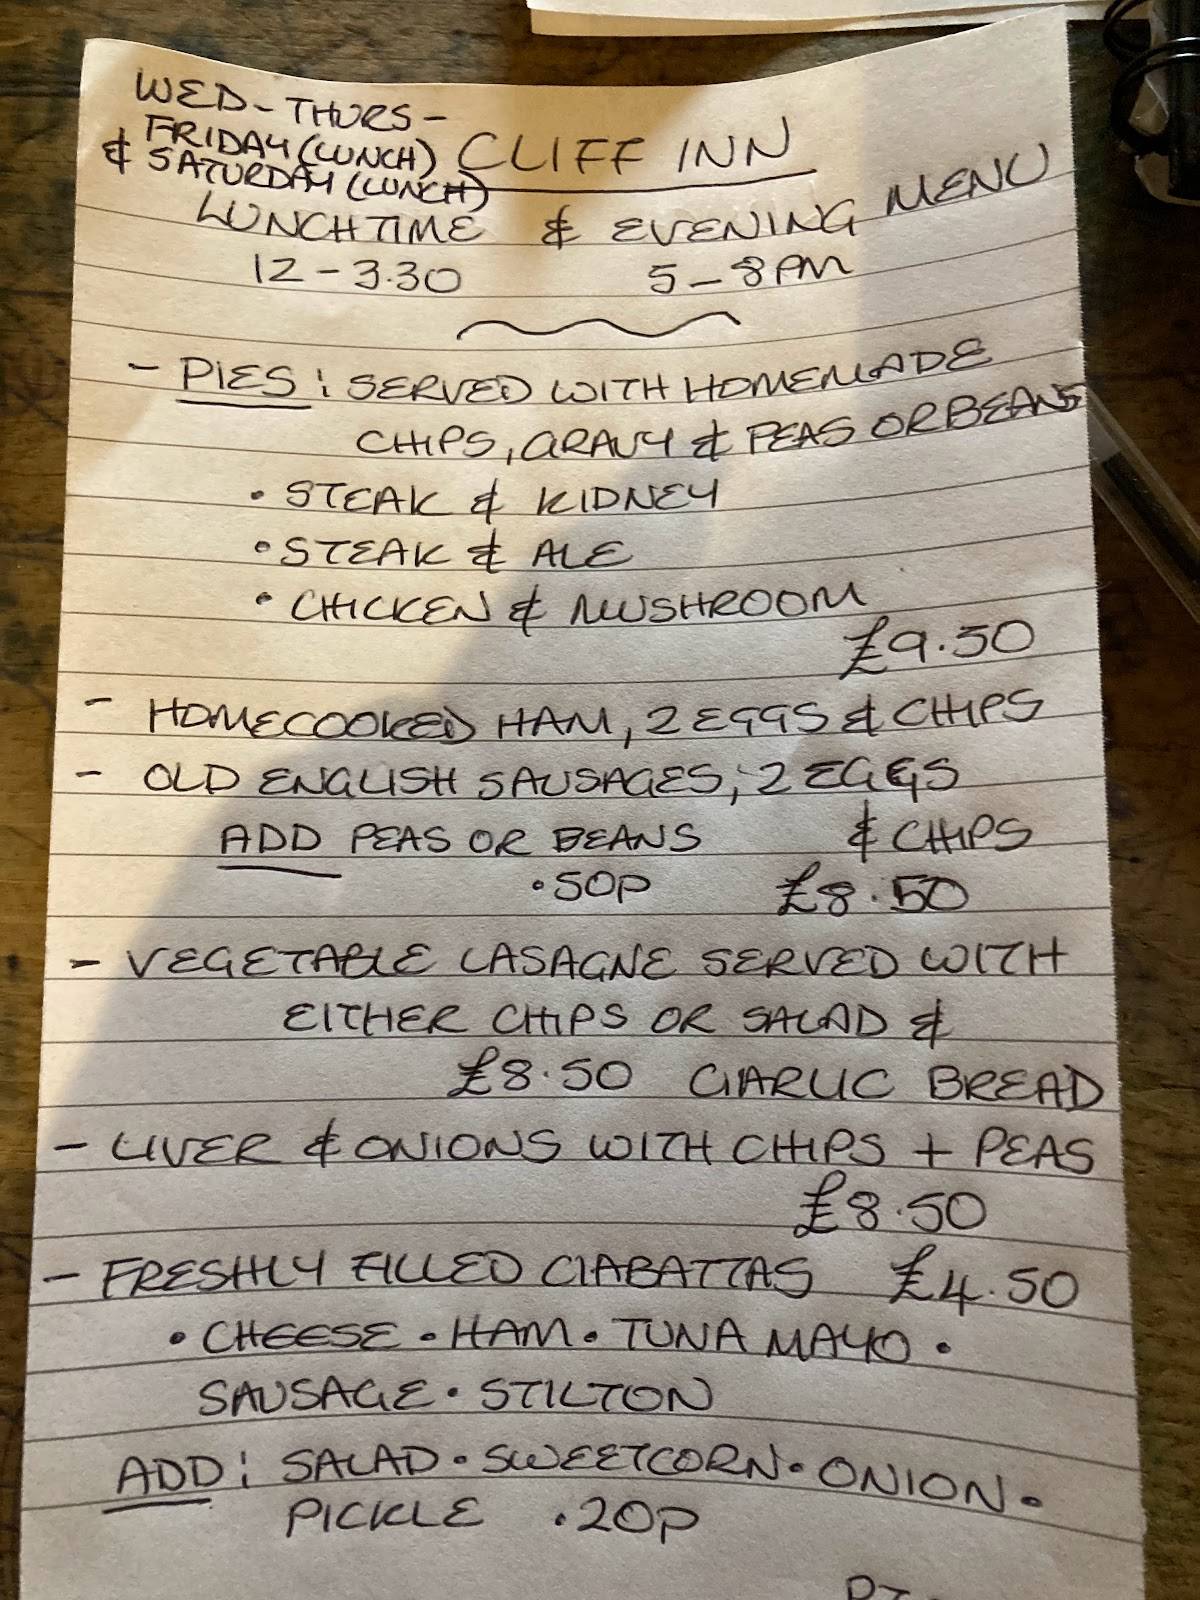 WED - THURS -
FRIDAY (LUNCH)
& SATURDAY (LUNCH)
CLIFF INN
LUNCHTIME & EVENING MENU
12 - 3.30 5 - 8PM
- PIES : SERVED WITH HOMEMADE
CHIPS, GRAVY & PEAS OR BEANS
• STEAK & KIDNEY
• STEAK & ALE
• CHICKEN & MUSHROOM
£9.50
- HOMECOOKED HAM, 2 EGGS & CHIPS
- OLD ENGLISH SAUSAGES, 2 EGGS
ADD PEAS OR BEANS & CHIPS
•50P £8.50
- VEGETABLE LASAGNE SERVED WITH
EITHER CHIPS OR SALAD &
£8.50 GARLIC BREAD
- LIVER & ONIONS WITH CHIPS + PEAS
£8.50
- FRESHLY FILLED CIABATTAS £4.50
• CHEESE • HAM • TUNA MAYO •
SAUSAGE • STILTON
ADD : SALAD • SWEETCORN • ONION •
PICKLE •20P